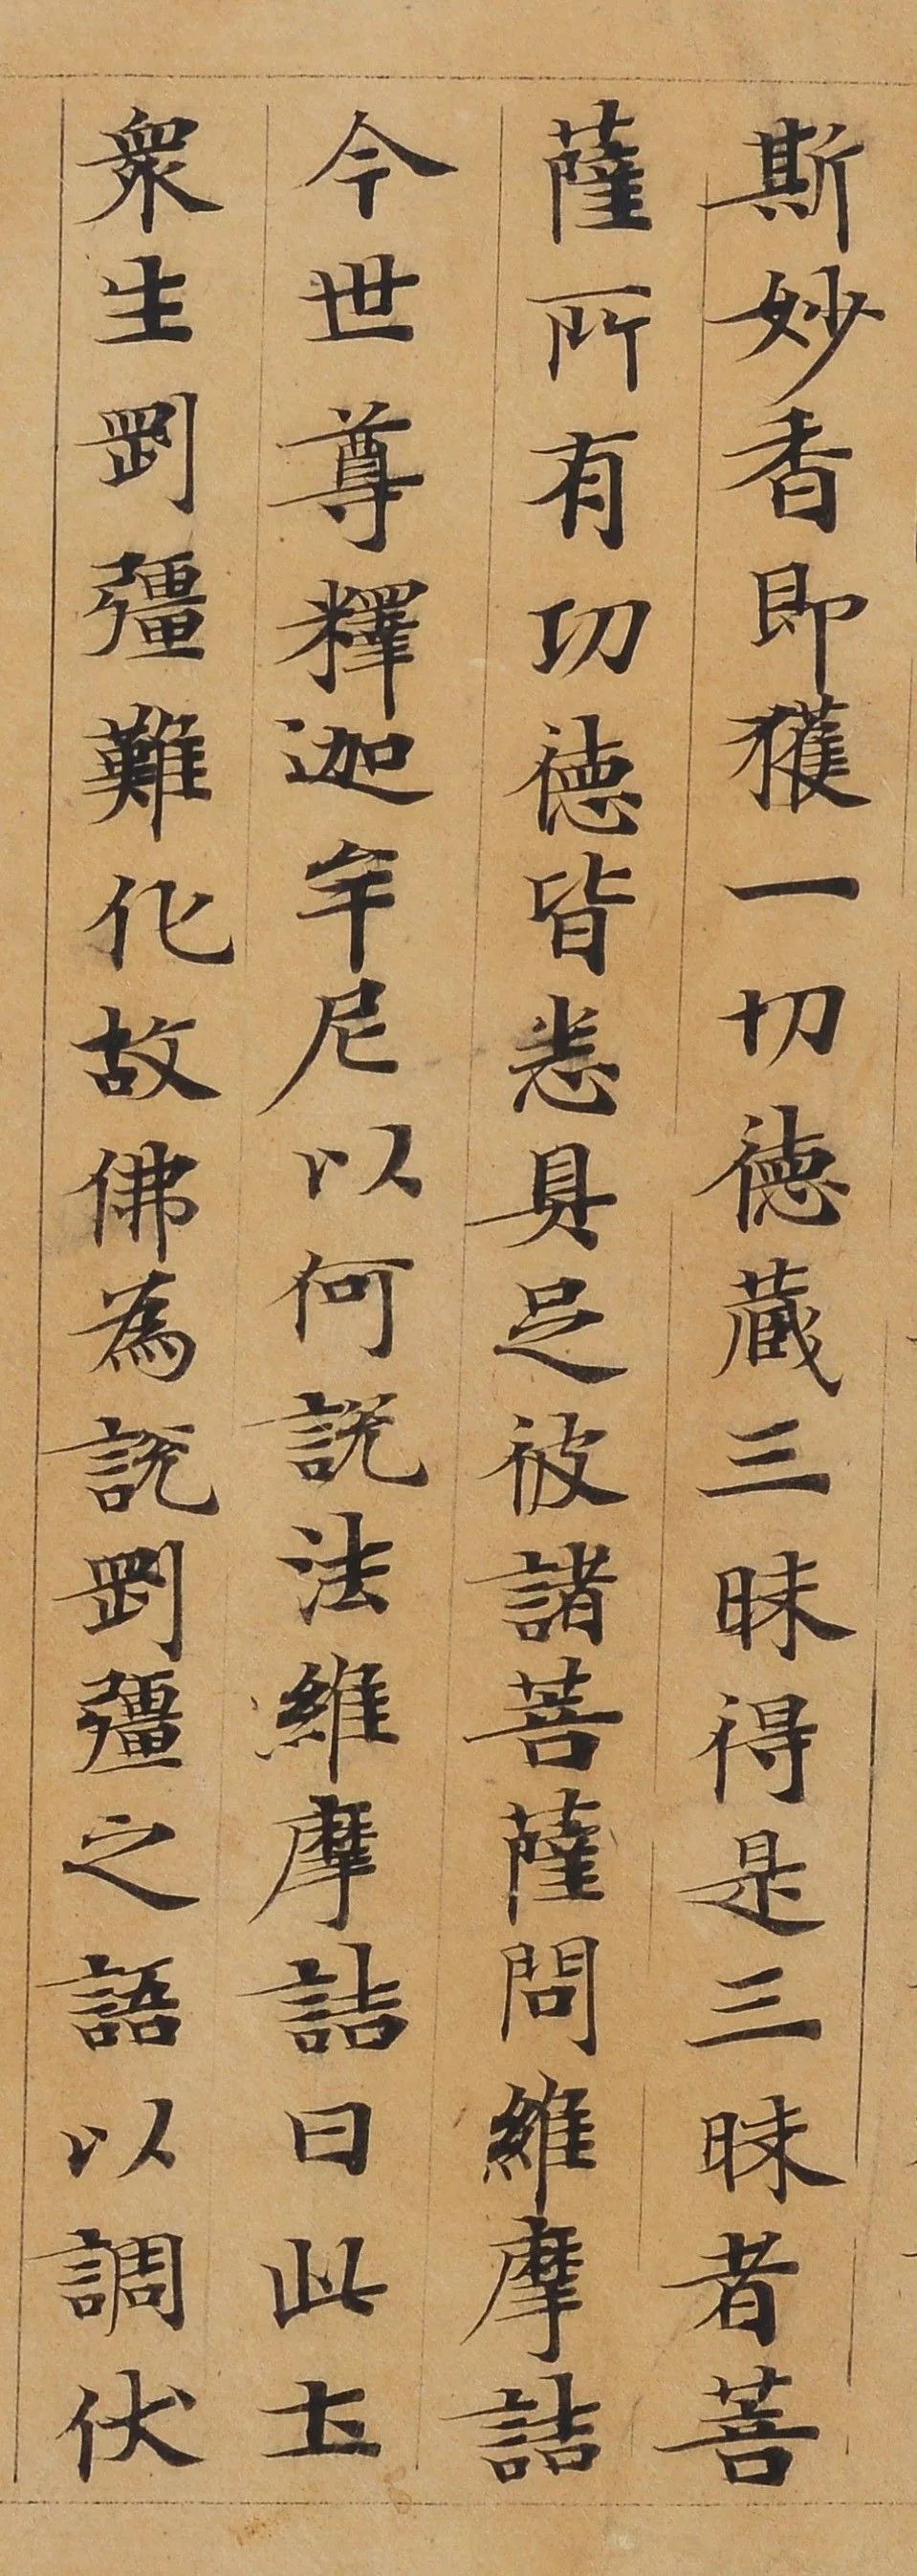 斯妙香即獲一切德藏三昧得是三昧者菩
薩所有功德皆悉具足彼諸菩薩問維摩詰
今世尊釋迦牟尼以何説法維摩詰曰此土
衆生剛彊難化故佛為説剛彊之語以調伏